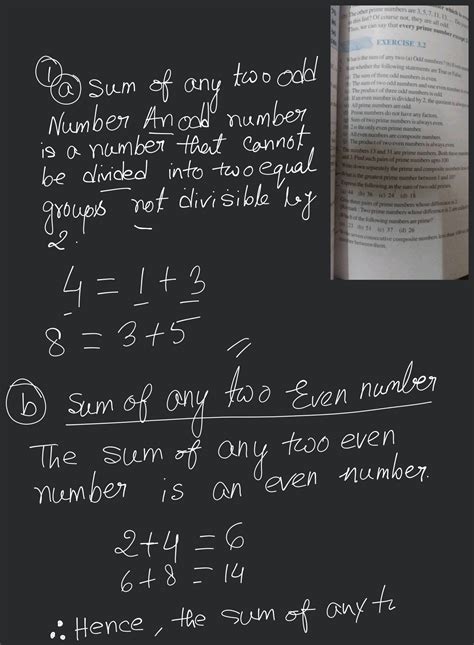 ① ⓐ Sum of any two odd
Number An odd number
is a number that cannot
be divided into two equal
groups not divisible by
2.
4 = 1 + 3
8 = 3 + 5
ⓑ Sum of any two Even number
The sum of any two even
number is an even number.
2+4 = 6
6+8 = 14
∴ Hence, the sum of any t
The other prime numbers are 3, 5, 7, 11, 13,
this list? Of course not, they are all odd.
Thus, we can say that every prime number except 2
EXERCISE 3.2
What is the sum of any two (a) Odd numbers? (b) Even
whether the following statements are True or False:
The sum of three odd numbers is even.
The sum of two odd numbers and one even number is
The product of three odd numbers is odd.
If an even number is divided by 2, the quotient is always
All prime numbers are odd.
Prime numbers do not have any factors.
Sum of two prime numbers is always even.
2 is the only even prime number.
All even numbers are composite numbers.
The product of two even numbers is always even.
numbers 13 and 31 are prime numbers. Both these
and 3. Find such pairs of prime numbers upto 100.
down separately the prime and composite numbers
is the greatest prime number between 1 and 10?
Express the following as the sum of two odd primes.
44 (b) 36 (c) 24 (d) 18
three pairs of prime numbers whose difference is 2.
Two prime numbers whose difference is 2 are called
of the following numbers are prime?
23 (b) 51 (c) 37 (d) 26
seven consecutive composite numbers less than 100
number between them.